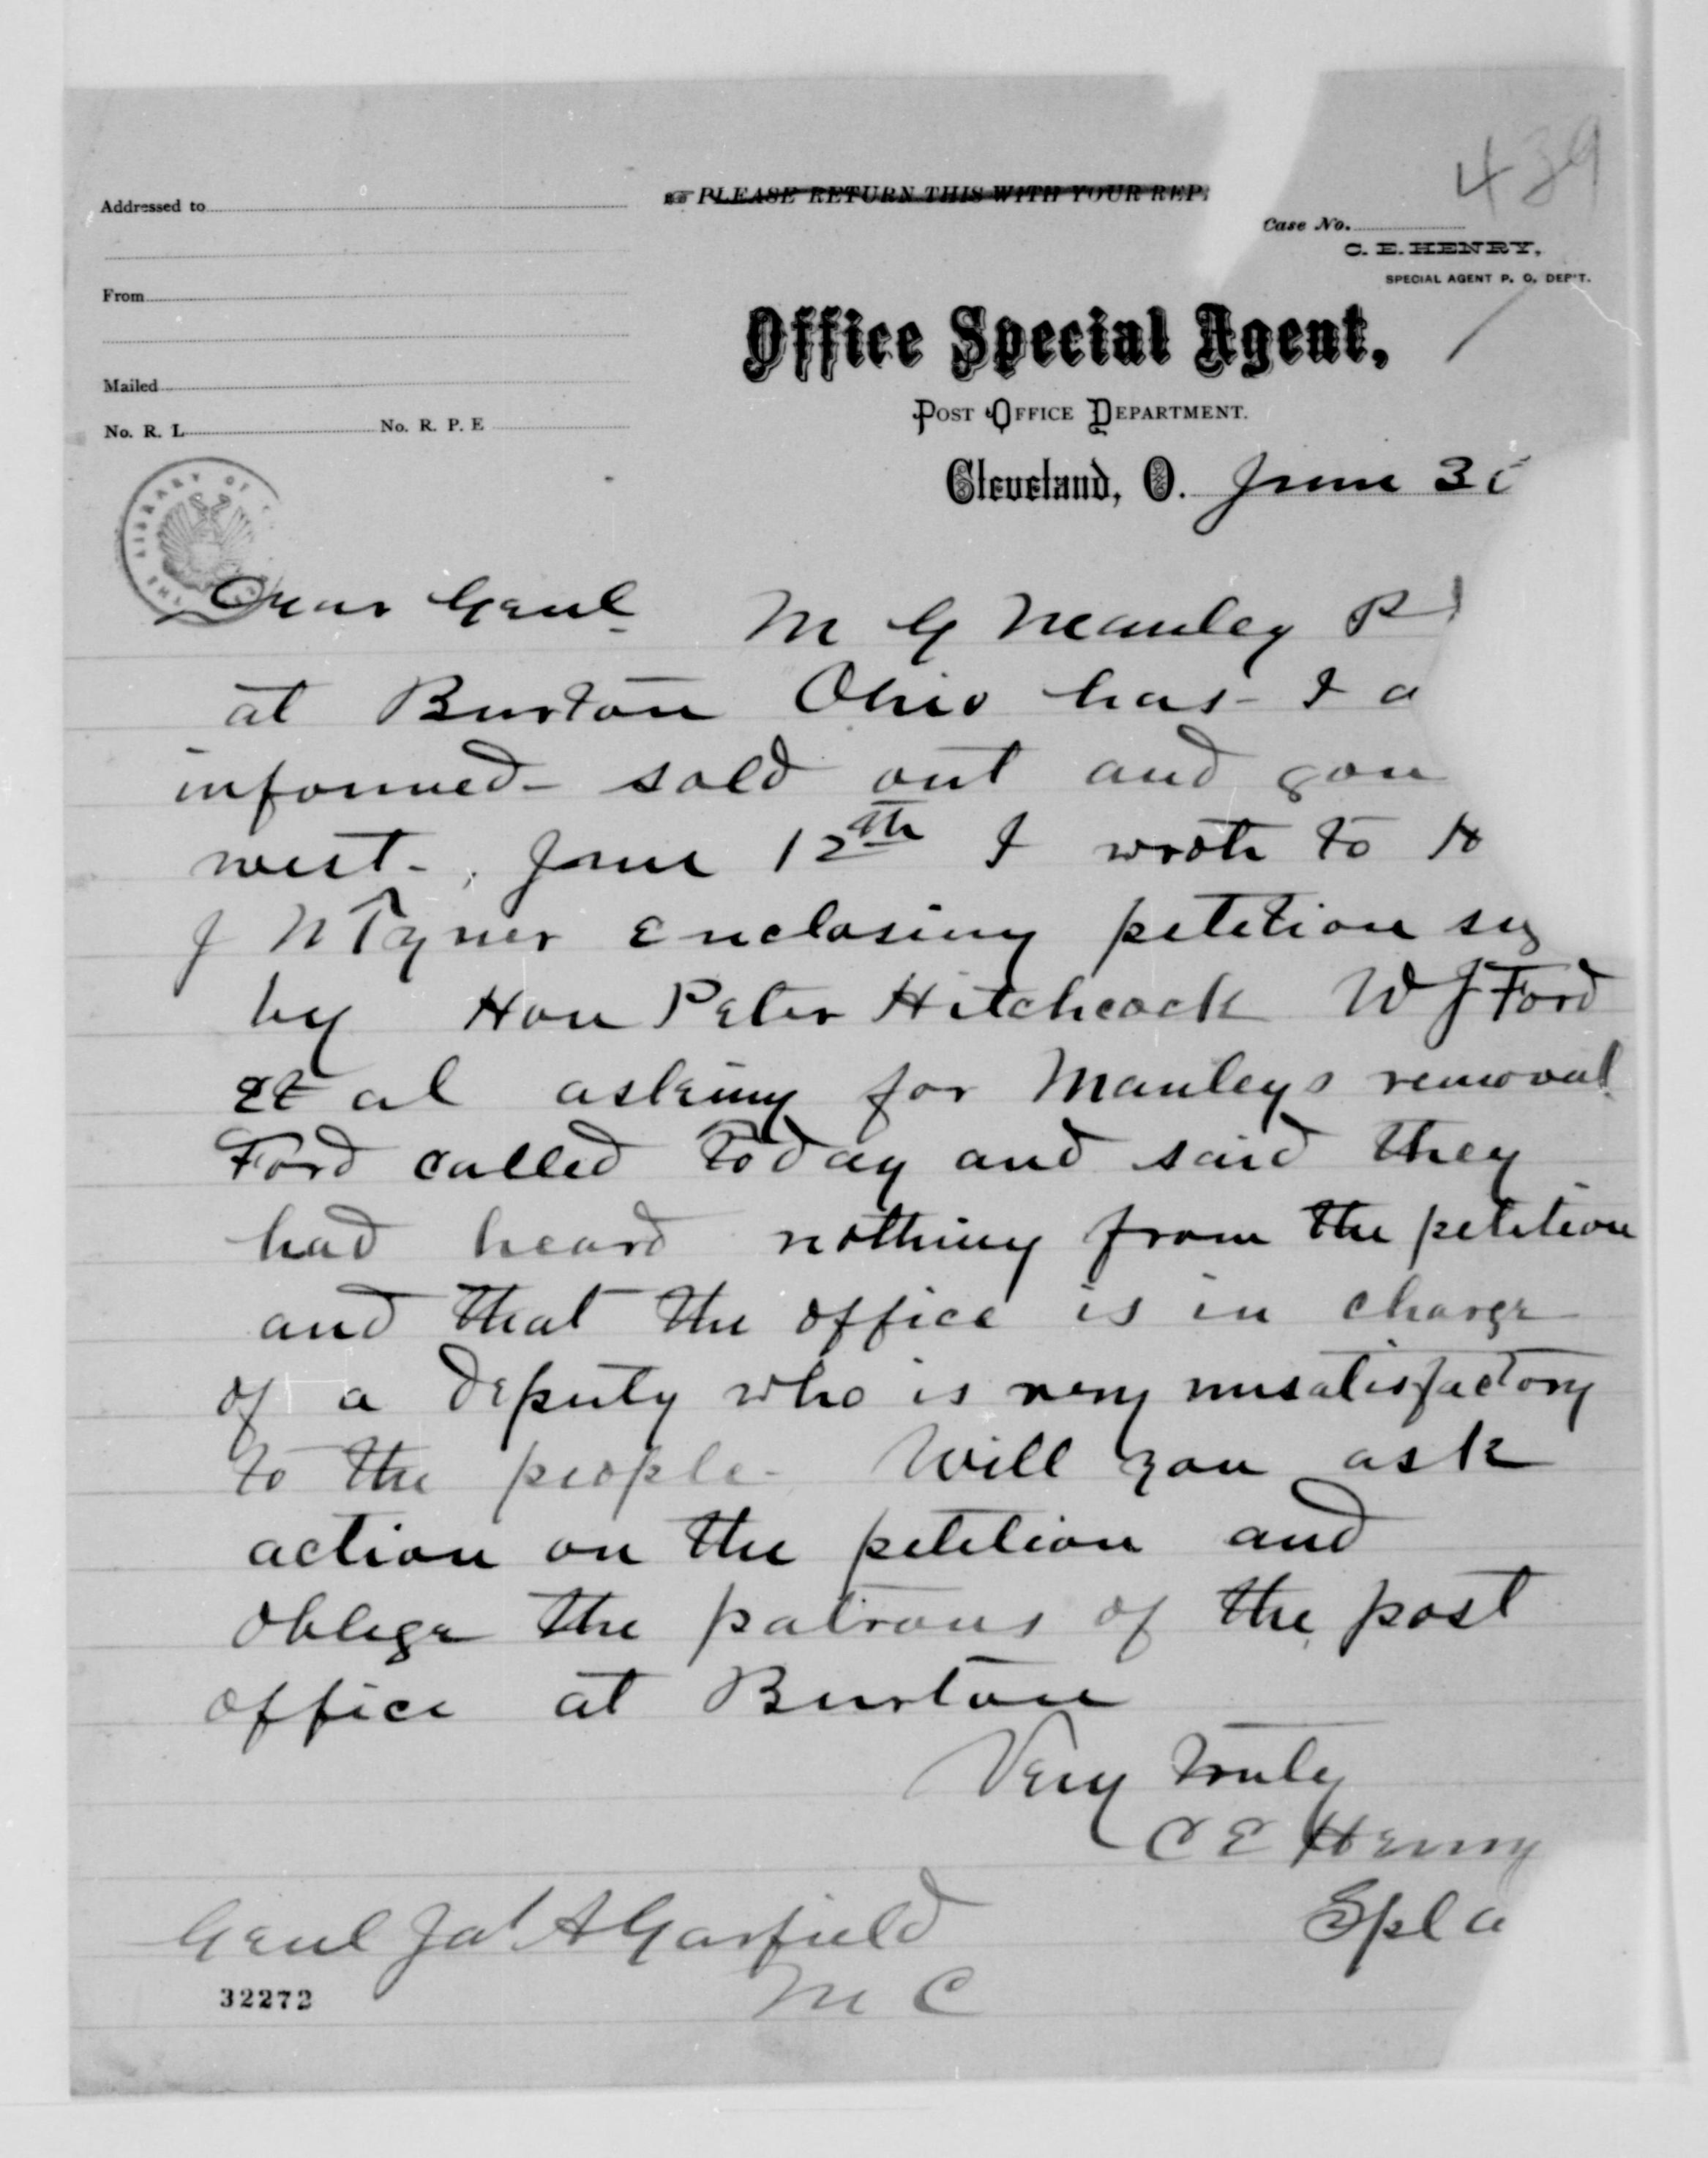 439
Addressed to
☞ PLEASE RETURN THIS WITH YOUR REP
Case No.
C. E. HENRY,
SPECIAL AGENT P. O. DEP'T.
From
Office Special Agent,
Mailed
POST OFFICE DEPARTMENT.
No. R. L. No. R. P. E
Cleveland, O. June 30
THE LIBRARY OF
Dear Genl M G Manley P
at Burton Ohio has - I a
informed - sold out and gon
west - , June 12th I wrote to H
J N Tyner Enclosing petition sig
by Hon Peter Hitchcock W J Ford
et al asking for Manleys removal
Ford called today and said they
had heard nothing from the petition
and that the office is in charge
of a deputy who is very unsatisfactory
to the people - Will you ask
action on the petition and
oblige the patrons of the post
office at Burton
Very truly
C E Henry
Spl a
Genl Jas A Garfield
M C
32272